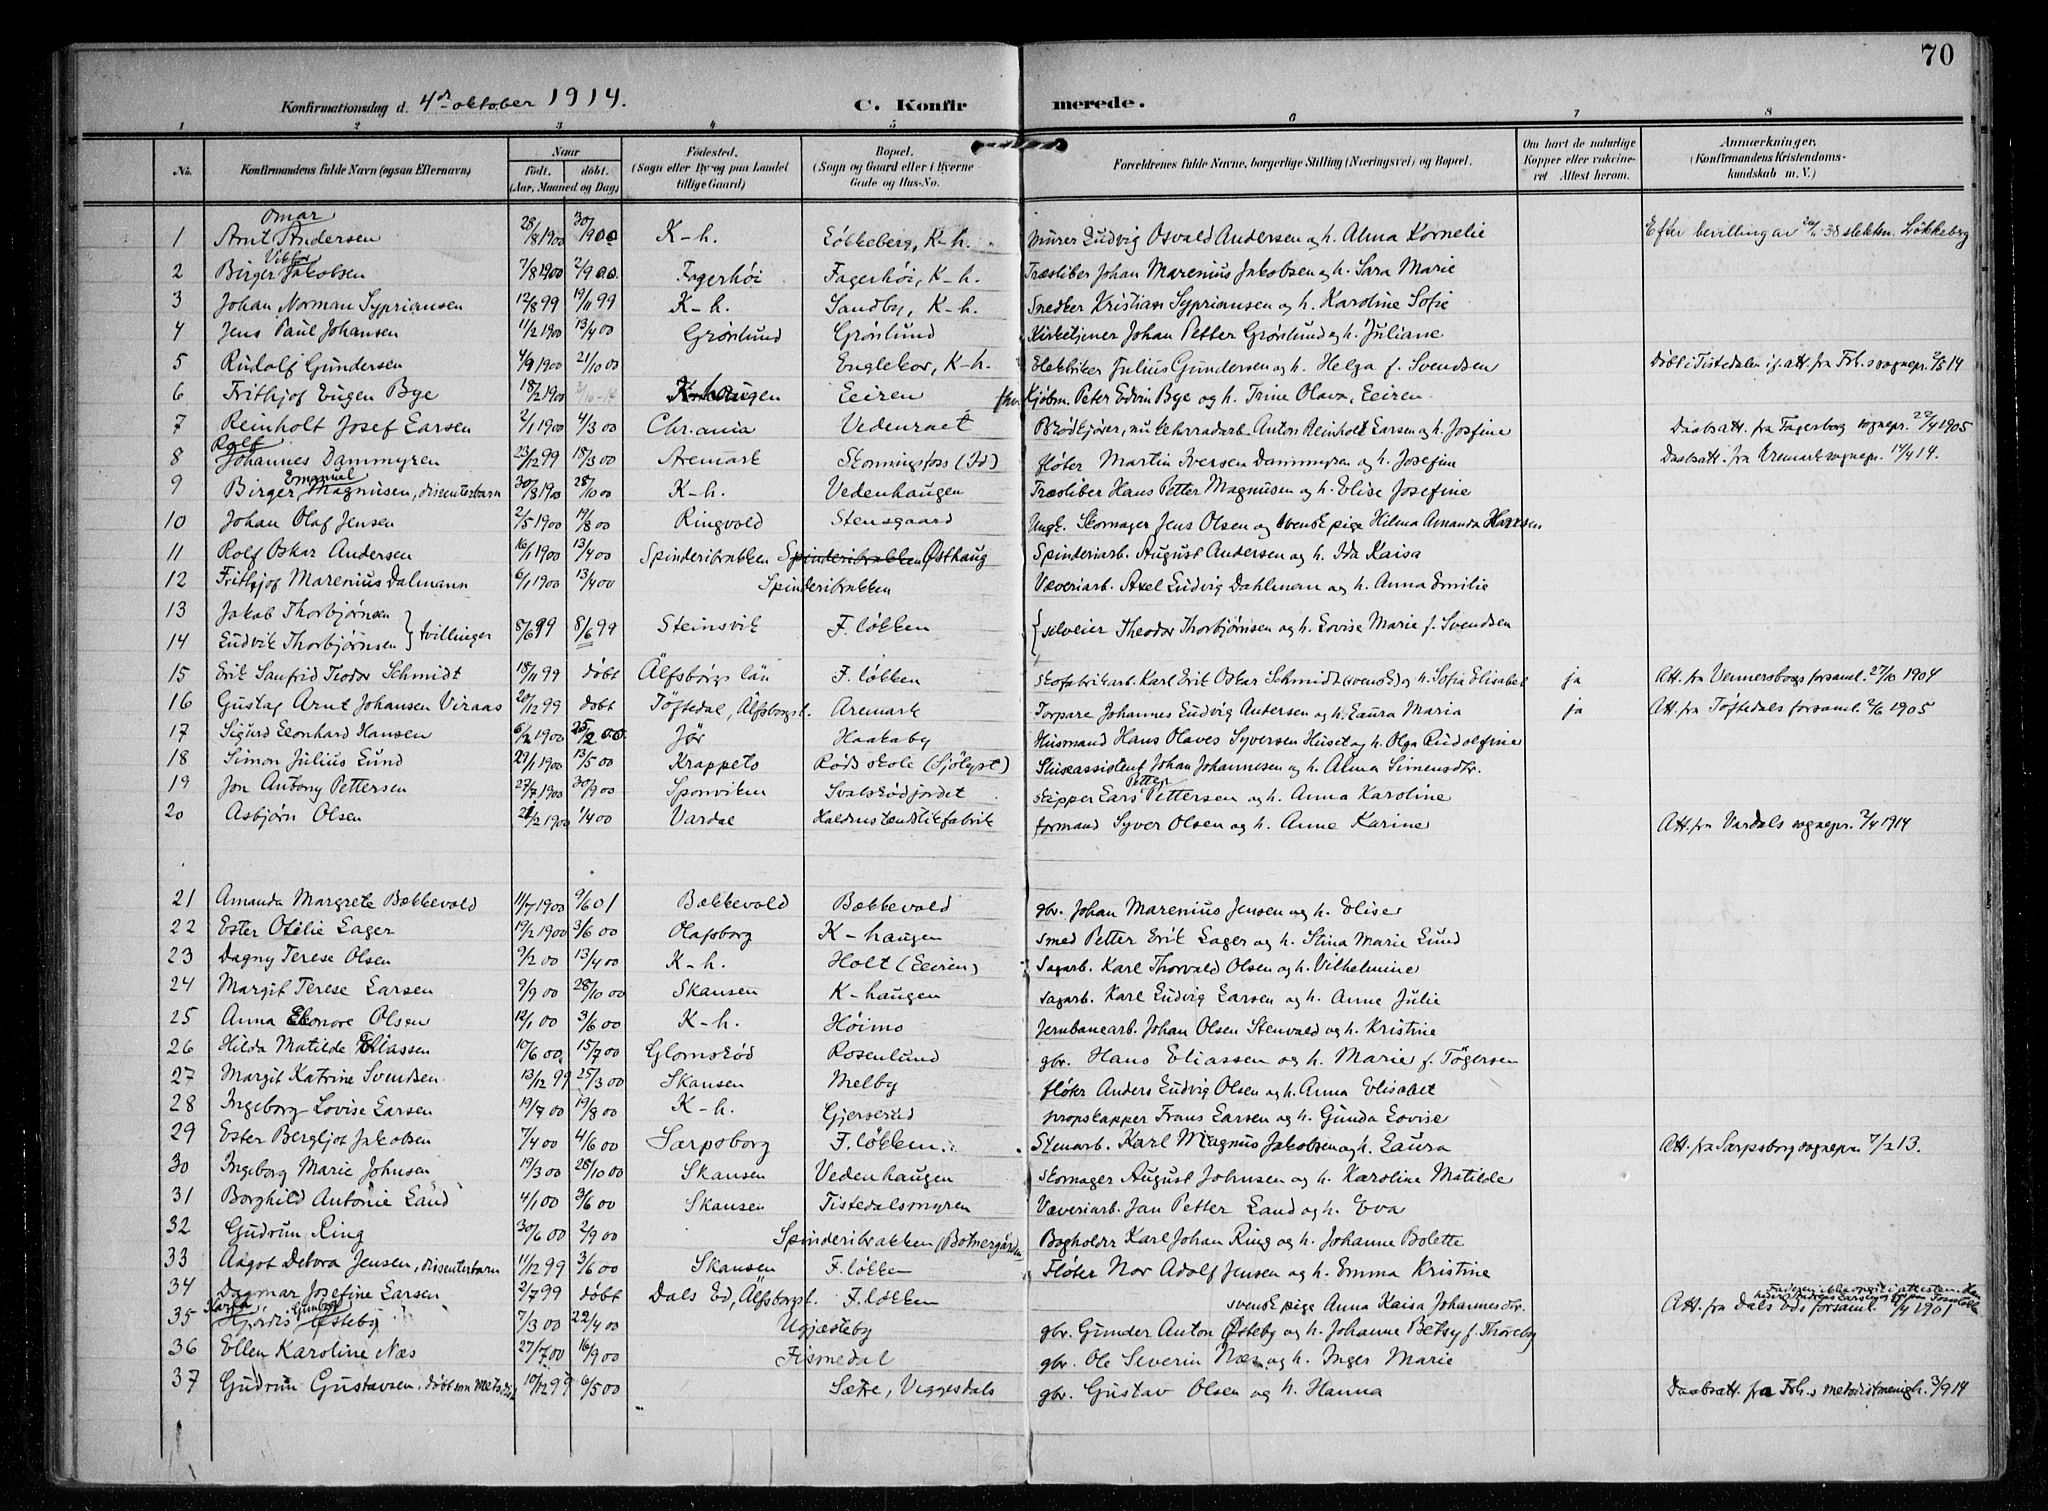 70
Konfirmationsdag d. 4de oktober 1914. C. Konfirmerede.
1 2 3 4 5 6 7 8
No. Konfirmandens fulde Navn (ogsaa Efternavn) Naar født. døbt. (Aar, Maaned og Dag) Fødested. (Sogn eller By og paa Landet tillige Gaard) Bopæl. (Sogn og Gaard eller i Byerne Gade og Hus-No. Forældrenes fulde Navne, borgerlige Stilling (Næringsvei) og Bopæl. Om havt de naturlige Kopper eller vaccineret Attest herom. Anmærkninger, (Konfirmandens Kristendomskundskab m. V.)
1 Arnt Omar Andersen 28/8 1900 30/9 00 K-h. Løkkeberg, K-h. Murer Ludvig Osvald Andersen og h. Alma Kornelie Efter bevilling av 38 slektsn. Løkkeberg
2 Birger Viktor Jakobsen 7/8 1900 2/9 00 Fagerhøi Fagerhøi, K-h. Træsliber Johan Marenius Jakobsen og h. Sara Marie
3 Johan Norman Sypriansen 12/8 99 19/11 99 K-h. Sandby, K-h. Snedker Kristian Sypriansen og h. Karoline Sofie
4 Jens Paul Johansen 11/2 1900 13/4 00 Grønlund Grønlund Kirketjener Johan Petter Grønlund og h. Juliane
5 Rudolf Gundersen 4/9 1900 21/10 00 Englekor, K-h. Elektriker Julius Gundersen og h. Helga f. Svendsen Døbt i Tistedalen if. att. fra Frh.s sognepr. 2/5 14
6 Frithjof Eugen Bye 18/2 1900 K-haugen Leiren Kjøbm. Peter Edvin Bye og h. Trine Olava, Leiren
7 Reinholt Josef Larsen 2/1 1900 4/3 00 Chr.ania Vedenraet Brødkjører, nu lehrradarb. Anton Reinholt Larsen og h. Josfine Daabsatt. fra Fagerborg sognepr. 22/4 1905
8 Rolf Johannes Dammyren 23/12 99 18/3 00 Aremark Skonningsfoss (Id) Fløter Martin Iversen Dammyren og h. Josefine Daabsatt. fra Aremark sognepr. 14/4 14.
9 Birger Emanuel Magnusen, dissenterbarn 30/8 1900 28/10 00 K-h. Vedenhaugen Træsliber Hans Petter Magnusen og h. Elise Josefine
10 Johan Olaf Jensen 2/5 1900 19/8 00 Ringvold Stensgaard Ungk. Skomager Jens Olsen og svensk pige Hilma Amanda Hansen
11 Rolf Oskar Andersen 16/1 1900 13/4 00 Spinderibrakken Spinderibrakken Østhaug Spinderiarb. August Andersen og h. Ida Kaisa
12 Frithjof Marenius Dalmann 6/1 1900 13/4 00 Spinderibrakken Væveriarb. Axel Ludvig Dahlman og h. Anna Emilie
13 Jakob Thorbjørnsen
14 Ludvik Thorbjørnsen } tvillinger 8/6 99 8/6 99 Steinsvik F. løkken { selveier Theodor Thorbjørnsen og h. Lovise Marie f. Svendsen
15 Erik Sanfrid Teodor Schmidt 18/11 99 døbt Älfsborgs län F. løkken Skofabrikarb. Karl Erik Oskar Schmidt (svensk) og h. Sofia Elisabet ja Att. fra Vennersborgs forsaml. 27/10 1904
16 Gustaf Arnt Johansen Viraas 20/12 99 døbt Töftedal, Älfsborgsl. Aremark Torpare Johannes Ludvig Andersen og h. Laura Maria ja Att. fra Töftedals forsaml. 2/6 1905
17 Sigurd Leonhard Hansen 6/2 1900 25/2 00. Jør Haakaby Husmand Hans Olaves Syversen Huset og h. Olga Rudolfine
18 Simon Julius Lund 29/1 1900 13/5 00 Krappeto Røds skole (Sjølyst) Sluseassistent Johan Johannesen og h. Alma Simensdtr.
19 Jon Antony Pettersen 27/7 1900 30/9 00 Sponviken Svalerødjordet Skipper Lars Petter Pettersen og h. Anna Karoline
20 Asbjørn Olsen 21/2 1900 1/4 00 Vardal Haldens tændstikfabrik formand Syver Olsen og h. Anne Karine Att. fra Vardals sognepr. 2/4 1914
21 Amanda Margrete Bækkevold 11/7 1900 9/6 01 Bækkevold Bækkevold gbr. Johan Marenius Jensen og h. Elise
22 Ester Otilie Lager 19/2 1900 3/6 00 Olafsborg K-haugen Smed Petter Erik Lager og h. Stina Marie Lund
23 Dagny Terese Olsen 9/2 00 13/4 00 K-h. Holt (Leiren) Sagarb. Karl Thorvald Olsen og h. Vilhelmine
24 Margit Terese Larsen 9/9 00 28/10 00 Skansen K-haugen Sagarb. Karl Ludvig Larsen og h. Anne Julie
25 Anna Eleonore Olsen 12/1 00 3/6 00 K-h. Høimo Jernbanearb. Johan Olsen Stenvald og h. Kristine
26 Hilda Matilde Eliassen 10/6 00 15/7 00 Glomskød Rosenlund gbr. Hans Eliassen og h. Marie f. Tögersen
27 Margit Katrine Svendsen 13/12 99 25/3 00 Skansen Melby fløter Anders Ludvig Olsen og h. Anna Elisabet
28 Ingeborg Lovise Larsen 19/7 00 19/8 00 K-h. Gjerserud propskapper Frans Larsen og h. Gunda Lovise
29 Ester Bergljot Jakobsen 7/4 00 4/6 00 Sarpsborg F. løkken Stenarb. Karl Magnus Jakobsen og h. Laura Att. fra Sarpsborg sognepr. 7/2 13.
30 Ingeborg Marie Johnsen 19/3 00 28/10 00 Skansen Vedenhaugen Skomager August Johnsen og h. Karoline Matilde
31 Borghild Antonie Land 4/1 00 3/6 00 Skansen Tistedalsmyren Væveriarb. Jan Petter Land og h. Eva
32 Gudrun Ring 30/6 00 2/9 00 Spinderibrakken (Botnergården) Bogholder Karl Johan Ring og h. Johanne Bolette
33 Aagot Debora Jensen, dissenterbarn 11/12 99 3/6 00 Skansen F. løkken Fløter Nor Adolf Jensen og h. Emma Kristine
34 Dagmar Josefine Larsen 2/7 99 døbt Dals Ed, Älfsborgsl. F. løkken svensk pige Anna Kaisa Johannesdtr. Att. fra Dals Eds forsaml. 1/4 1901
35 Hjørdis Gunborg Østeby 7/3 00 22/4 00 Ugjæsteby gbr. Gunder Anton Østeby og h. Johanne Betsy f. Thoreby
36 Ellen Karoline Næs 27/7 00 16/9 00 Fismedal gbr. Ole Severin Næs og h. Inger Marie
37 Gudrun Gustavsen, døbt som metodist 10/12 99 6/5 00 Sætre, Viggesdals gbr. Gustav Olsen og h. Hanna Daabsatt. fra Frh.s metodistmenigh. 3/9 14